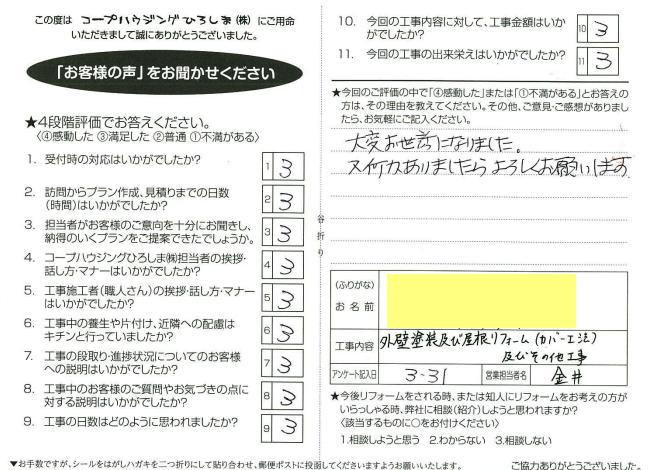 この度は コープハウジングひろしま(株) にご用命
いただきまして誠にありがとうございました。
「お客様の声」をお聞かせください
★4段階評価でお答えください。
〈④感動した ③満足した ②普通 ①不満がある〉
1. 受付時の対応はいかがでしたか?
1 3
2. 訪問からプラン作成、見積りまでの日数
(時間)はいかがでしたか?
2 3
3. 担当者がお客様のご意向を十分にお聞きし、
納得のいくプランをご提案できたでしょうか。
3 3
4. コープハウジングひろしま㈱担当者の挨拶・
話し方・マナーはいかがでしたか?
4 3
5. 工事施工者(職人さん)の挨拶・話し方・マナー
はいかがでしたか?
5 3
6. 工事中の養生や片付け、近隣への配慮は
キチンと行っていましたか?
6 3
7. 工事の段取り・進捗状況についてのお客様
への説明はいかがでしたか?
7 3
8. 工事中のお客様のご質問やお気づきの点に
対する説明はいかがでしたか?
8 3
9. 工事の日数はどのように思われましたか?
9 3
▼お手数ですが、シールをはがしハガキを二つ折りにして貼り合わせ、郵便ポストに投函してくださいますようお願いいたします。
谷折り
10. 今回の工事内容に対して、工事金額はいか
がでしたか?
10 3
11. 今回の工事の出来栄えはいかがでしたか?
11 3
★今回のご評価の中で「④感動した」または「①不満がある」とお答えの
方は、その理由を教えてください。その他、ご意見・ご感想がありまし
たら、お気軽にご記入ください。
大変お世話になりました。
又何かありましたらよろしくお願いします
(ふりがな)
お名前
工事内容 外壁塗装及び屋根リフォーム(カバー工法)
及びその他工事
アンケート記入日 3-31 営業担当者名 金井
★今後リフォームをされる時、または知人にリフォームをお考えの方が
いらっしゃる時、弊社に相談(紹介)しようと思われますか?
〈該当するものに○をお付けください〉
1.相談しようと思う 2.わからない 3.相談しない
ご協力ありがとうございました。